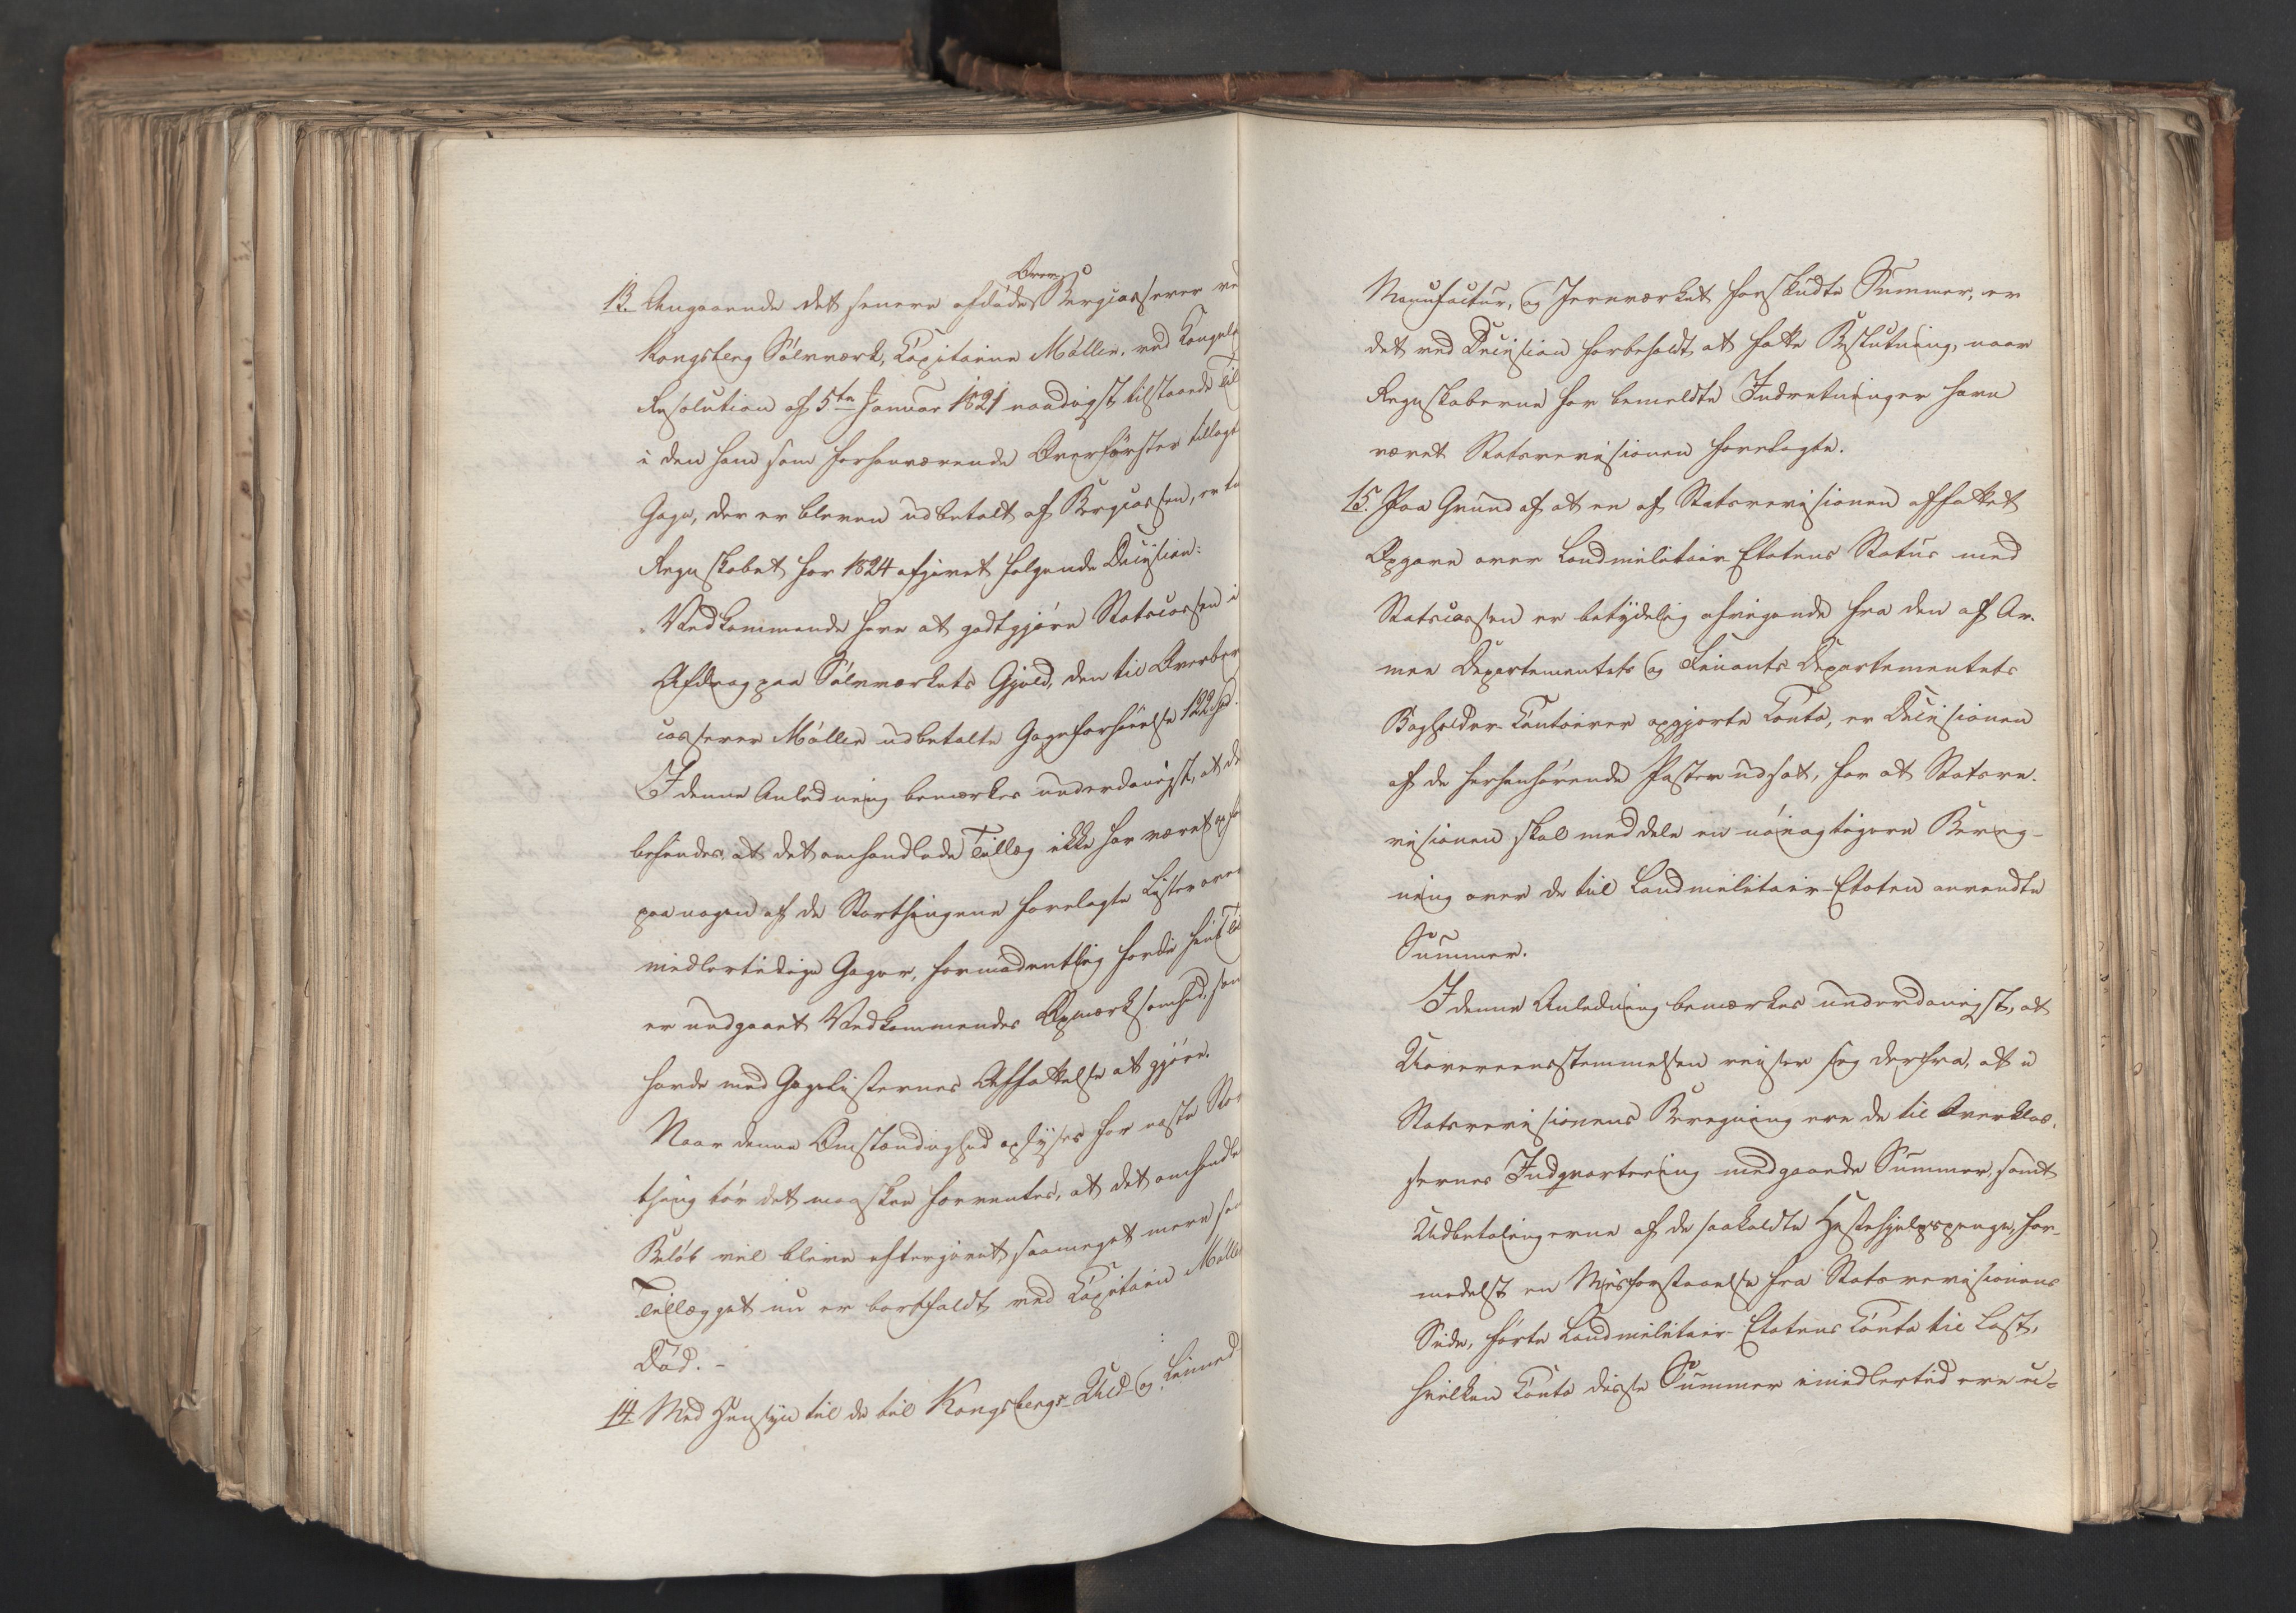 13. Angaaende det senere afdöde Over Bergcasserer ve
Kongsberg Sölvværk, Capitaine Möller, ved Kongel
Resolution af 5te Januar 1821 naadigst tilstaaede Til
i den ham som forhenværende Overförster tillagt
Gage, der er bleven udbetalt af Bergcassen, er
Regnskabet for 1824 afgivet fölgende Decision:
"Vedkommende have at godtgjöre Statscassen i
Afdrag paa Sölvværkets Gjeld, den til Overber
casserer Möller udbetalte Gageforhöielse 122 Spd.
I denne Anledning bemærkes underdanigst, at de
befindes, at det omhandlede Tillæg ikke har været opfö
paa nogen af de Storthingene forelagte Lister over
midlertidige Gager, formodentlig fordi hiint Til
er undgaaet Vedkommendes Opmærksomhed, som
havde med Gagelisternes Affattelse at gjöre.
Naar denne Omstændighed oplyses for næste Stor
thing tör det maaskee forventes, at det omhandle
Belöb vil blive eftergivet, saameget mere som
Tillægget nu er bortfaldt ved Capitain Mölle
Död. -
14. Med Hensyn til de til Kongsbergs Uld- og Linned
Manufactur, og Jernværket forskudte Summer, er
det ved Decision forbeholdt at fatte Beslutning, naar
Regnskaberne for bemeldte Indretninger have
været Statsrevisionen forelagte.
15. Paa Grund af at en af Statsrevisionen affattet
Opgave over Landmilitair Etatens Status med
Statscassen er betydelig afvigende fra den af Ar-
mee Departementets og Finants Departementets
Bogholder-Contoirer opgjorte Conto, er Decisionen
af de herhenhörende Poster udsat, for at Statsre-
visionen skal meddele en nöiagtigere Bereg-
ning over de til Landmilitair-Etaten anvendte
Summer.
I denne Anledning bemærkes underdanigst, at
Uovereensstemmelsen reiser sig derfra, at i
Statsrevisionens Beregning ere de til Overklas-
sernes Indqvartering medgaaede Summer, samt
Udbetalingerne af de saakaldte Hestehjelpspenge, for-
medelst en Misforstaaelse fra Statsrevisionens
Side, förte Landmilitair-Etatens Conto til Last,
hvilken Conto disse Summer imidlertid ere u-